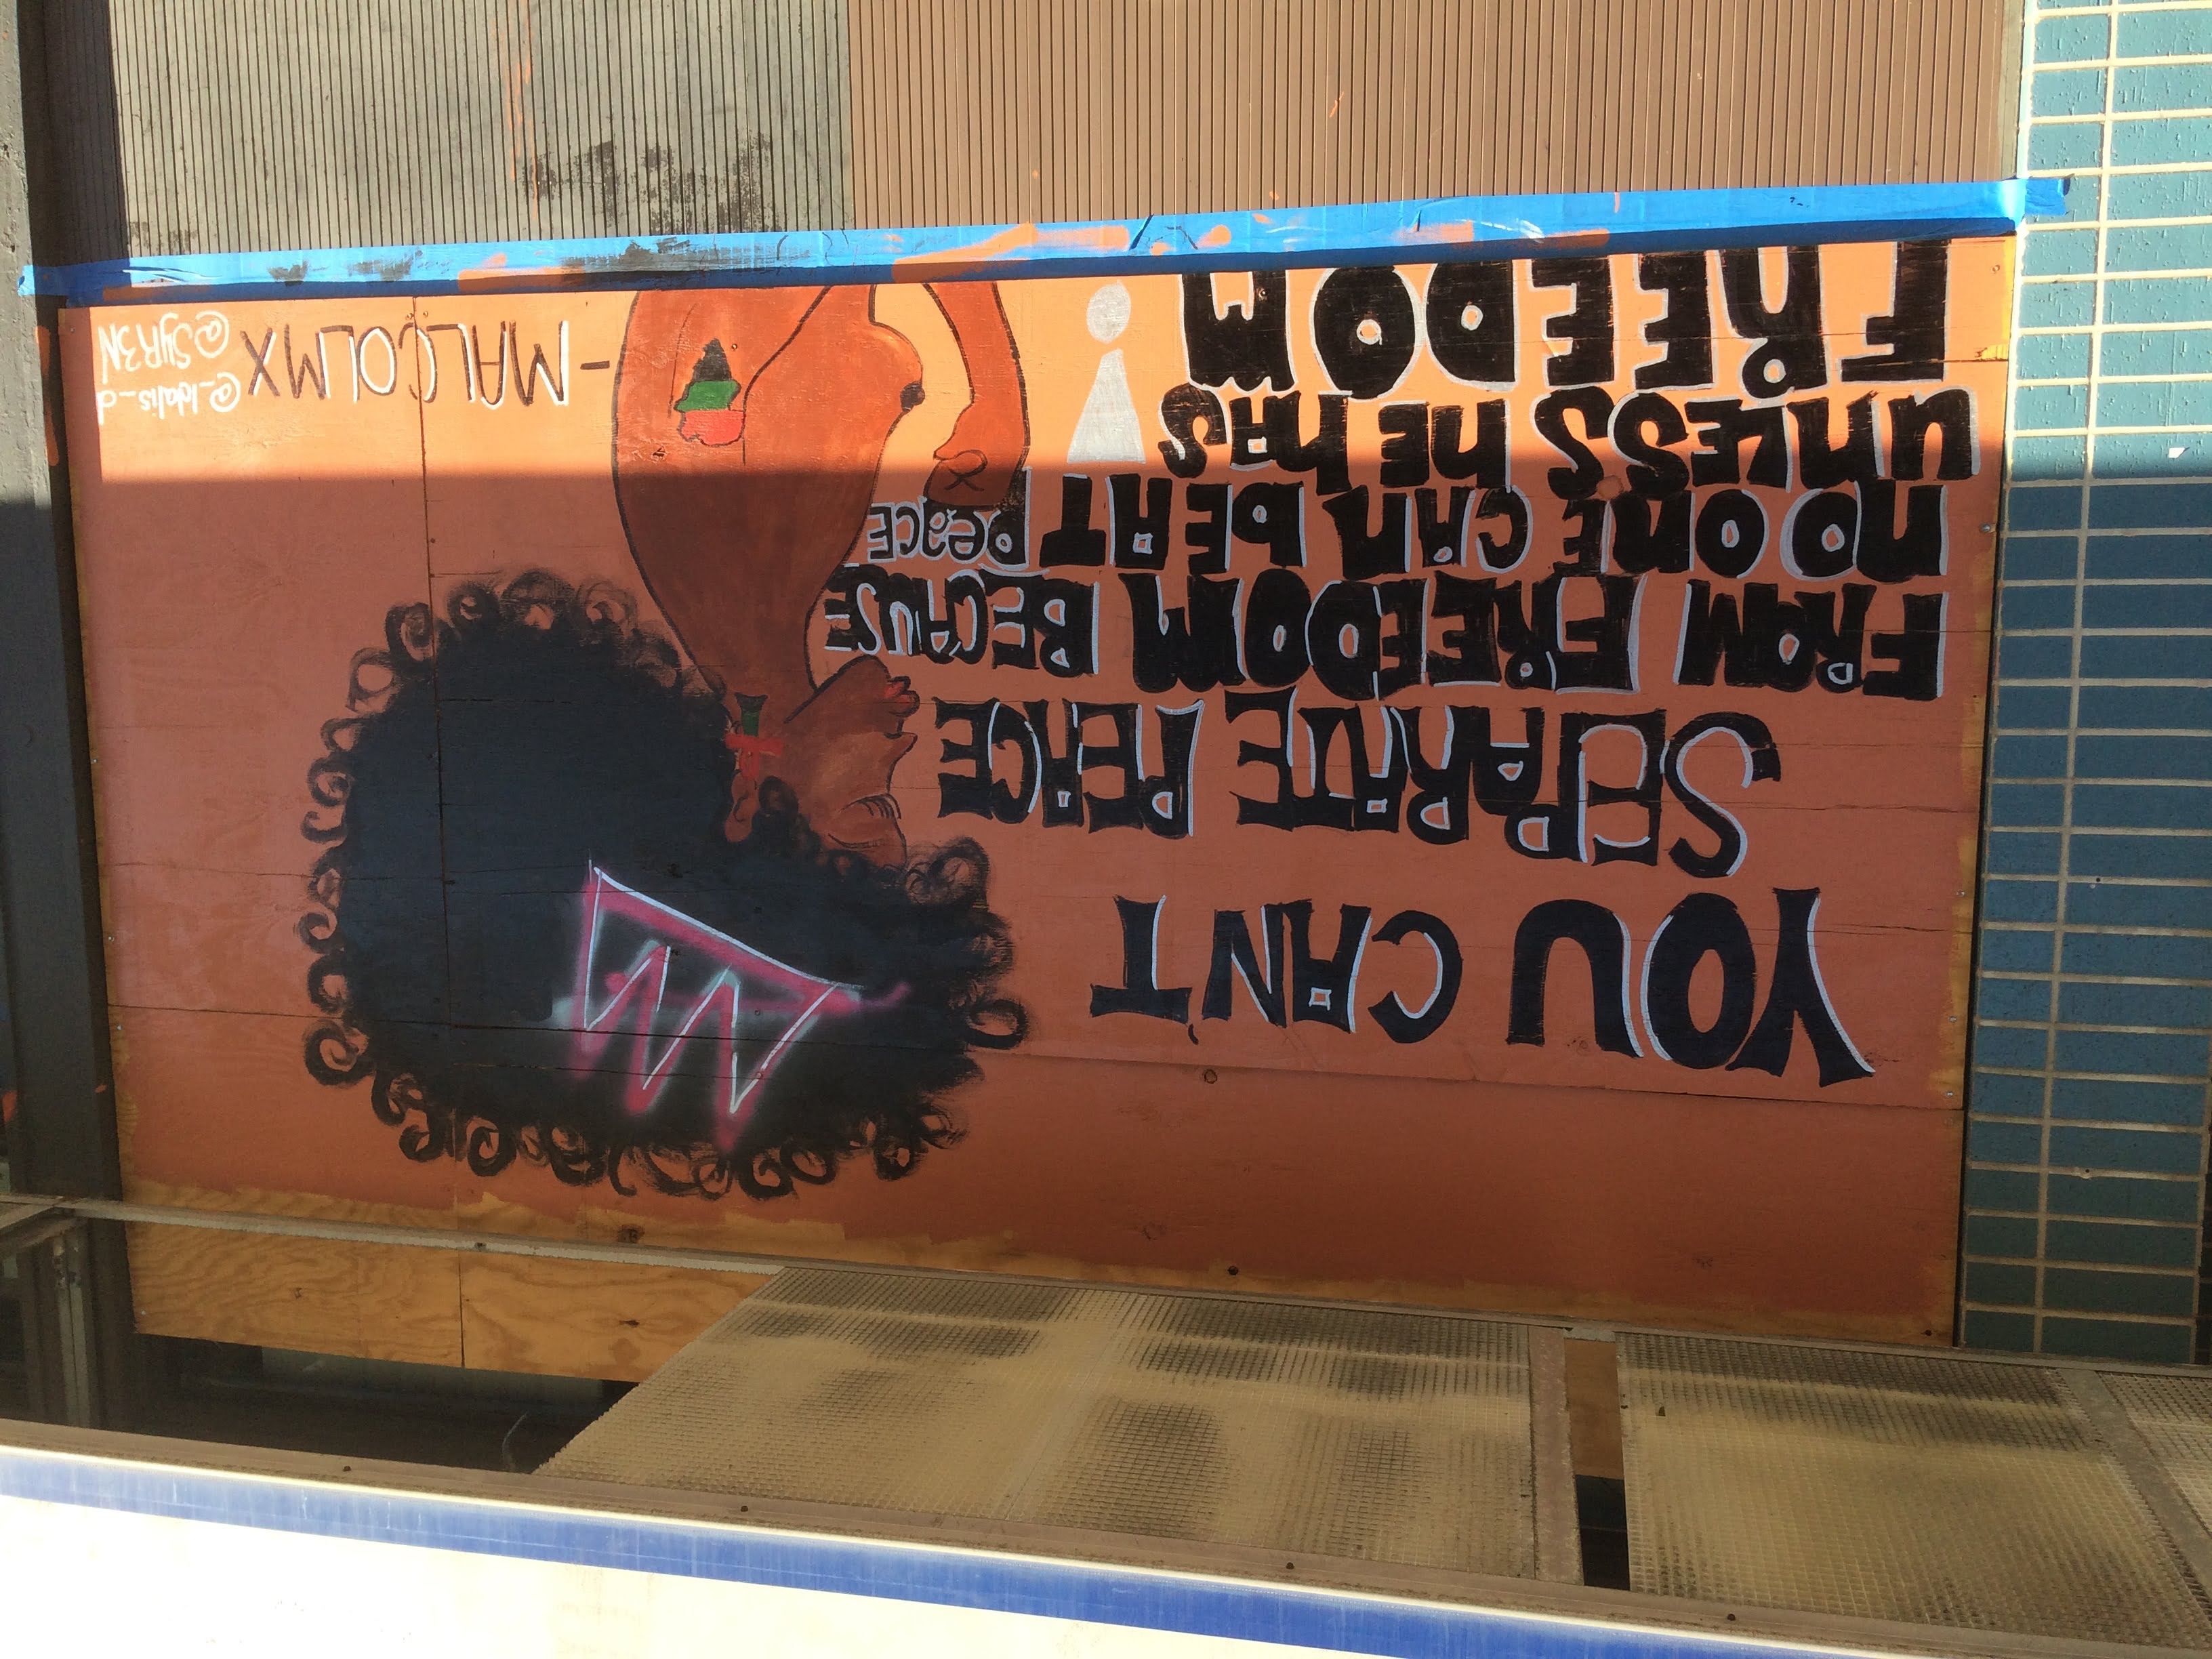 YOU CAN'T
SEPARATE PEACE
FROM FREEDOM BECAUSE
no one can bEAT peacE
unLESS he has
FREEDOM!
-MALCOLM X
@_Idalis_d
@SyR3N